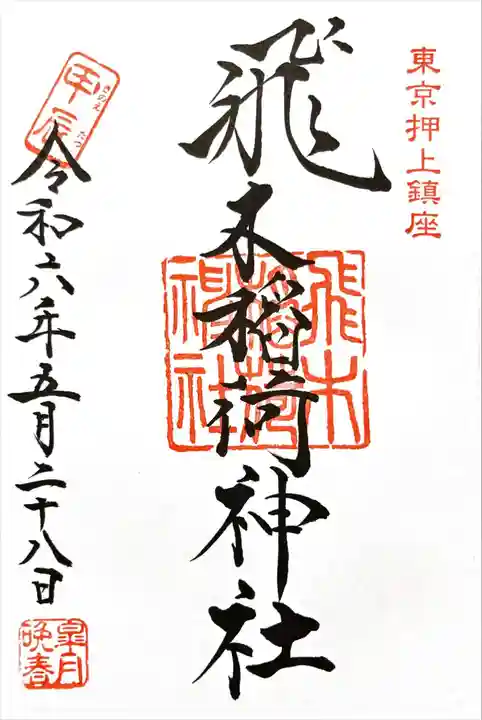 東京押上鎮座
飛木稲荷神社
飛木
稲荷
神社
甲辰
きのえ
たつ
令和六年五月二十八日
皐月
晩春